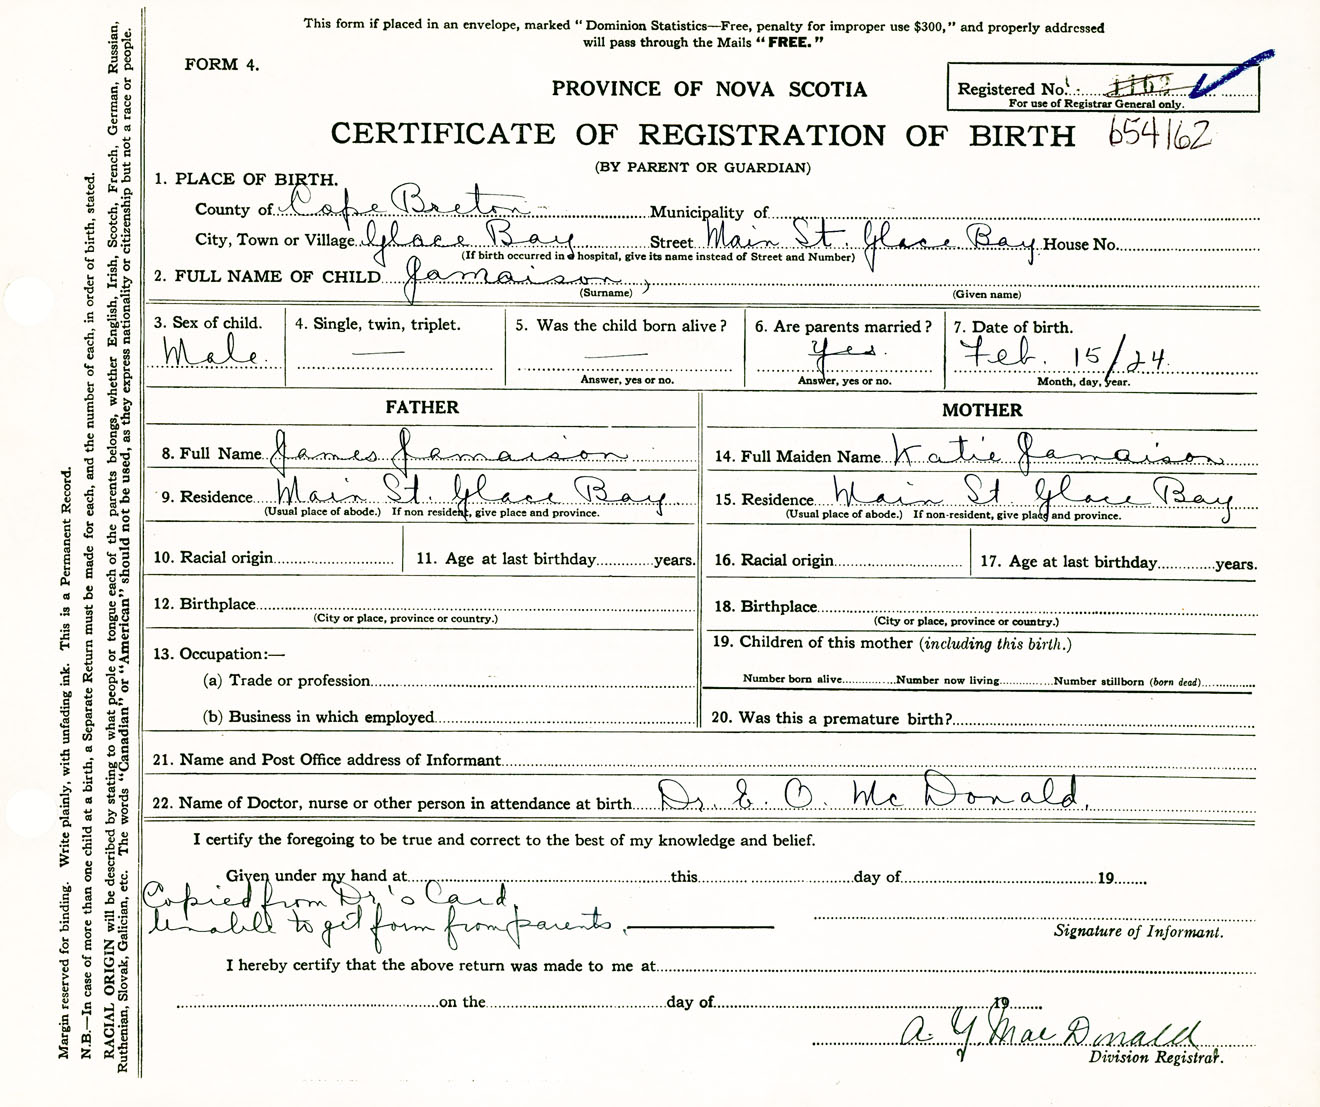 This form if placed in an envelope, marked "Dominion Statistics—Free, penalty for improper use $300," and properly addressed
will pass through the Mails "FREE."
FORM 4.
PROVINCE OF NOVA SCOTIA
Registered No. 1162
For use of Registrar General only.
CERTIFICATE OF REGISTRATION OF BIRTH 654162
(BY PARENT OR GUARDIAN)
1. PLACE OF BIRTH.
County of Cape Breton Municipality of
City, Town or Village Glace Bay Street Main St. Glace Bay House No.
(If birth occurred in a hospital, give its name instead of Street and Number)
2. FULL NAME OF CHILD Jamaison,
(Surname) (Given name)
3. Sex of child. 4. Single, twin, triplet. 5. Was the child born alive? 6. Are parents married? 7. Date of birth.
Male. — — Yes. Feb. 15/24.
Answer, yes or no. Answer, yes or no. Month, day, year.
FATHER MOTHER
8. Full Name James Jamaison 14. Full Maiden Name Katie Jamaison
9. Residence Main St. Glace Bay 15. Residence Main St. Glace Bay
(Usual place of abode.) If non resident, give place and province. (Usual place of abode.) If non-resident, give place and province.
10. Racial origin 11. Age at last birthday years. 16. Racial origin 17. Age at last birthday years.
12. Birthplace 18. Birthplace
(City or place, province or country.) (City or place, province or country.)
13. Occupation:— 19. Children of this mother (including this birth.)
(a) Trade or profession Number born alive Number now living Number stillborn (born dead)
(b) Business in which employed 20. Was this a premature birth?
21. Name and Post Office address of Informant
22. Name of Doctor, nurse or other person in attendance at birth Dr. E. O. McDonald.
I certify the foregoing to be true and correct to the best of my knowledge and belief.
Given under my hand at this day of 19
Copied from Dr's Card.
Unable to get form from parents.
Signature of Informant.
I hereby certify that the above return was made to me at
on the day of 19
A. Y MacDonald
Division Registrar.
Margin reserved for binding. Write plainly, with unfading ink. This is a Permanent Record.
N.B.—In case of more than one child at a birth, a Separate Return must be made for each, and the number of each, in order of birth, stated.
RACIAL ORIGIN will be described by stating to what people or tongue each of the parents belongs, whether English, Irish, Scotch, French, German, Russian,
Ruthenian, Slovak, Galician, etc. The words "Canadian" or "American" should not be used, as they express nationality or citizenship but not a race or people.